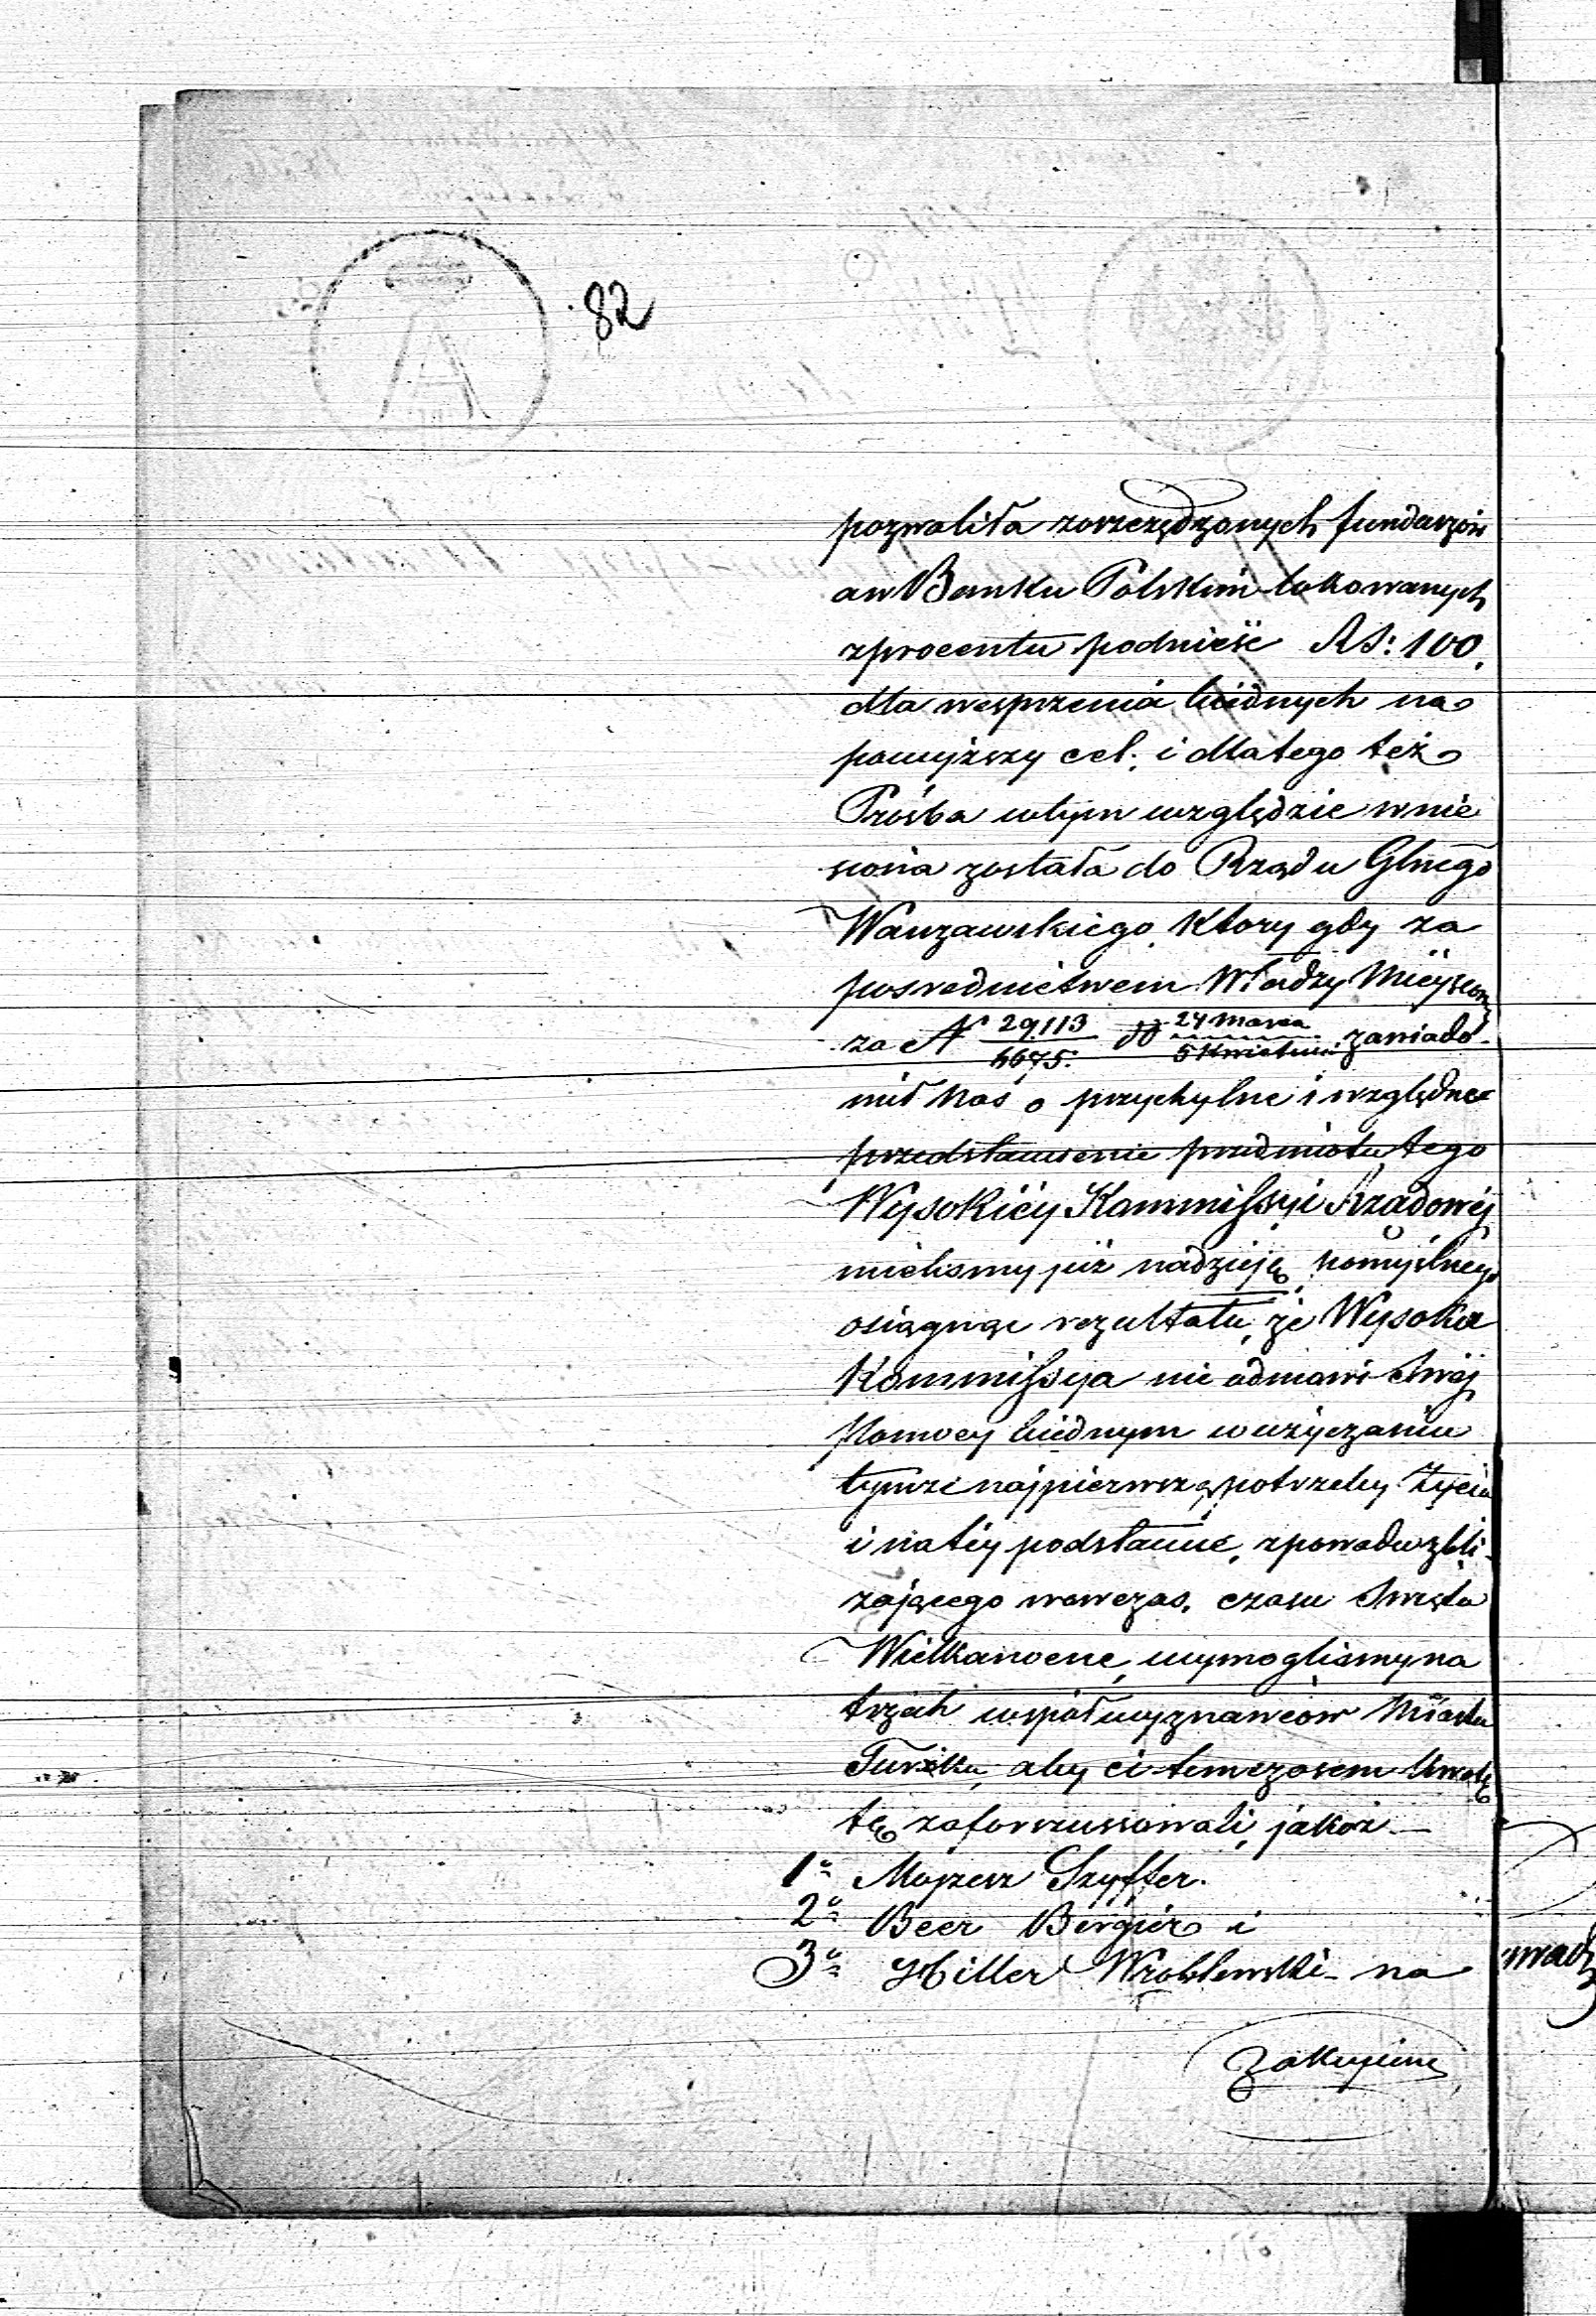 82
pozwoliła zoszczędzonych funduszów
a w Banku Polskim lokowanych
z procentu podnieść RS: 100.
dla wesprzenia biednych na
powyższy cel; i dlatego też
Prośba w tym względzie wnie
siona została do Rządu Glnego
Warszawskiego, ktory gdy za
posrednictwem Władzy Mieyscow
za N 29113/6675 dd 24 Marca/5 Kwietnia zawiado-
mił Nas o przychylne i względne
przedstawienie przedmiotu tego
Wysokiéy Kommissyi Rządowéj
mielismy już nadzieję, pomyślnego
osiągnąc rezultatu, że Wysoka
Kommissya nie odmowi Swéj
Pomocy biednym w użyczaniu
tymże najpierwszą potrzeby Życia
i na téy podstawie, z powodu zbli-
żającego wowczas, czasu Swięta
Wielkanocne, wymoglismy na
trzech współwyznawców Miasta
Turku, aby ci tymczasem Kwotę
tę zaforszussowali, jakoż —
1o Mojzesz Szyffer.
2o Beer Birgier i
3o Hiller Wroblewski na
Zakupienie